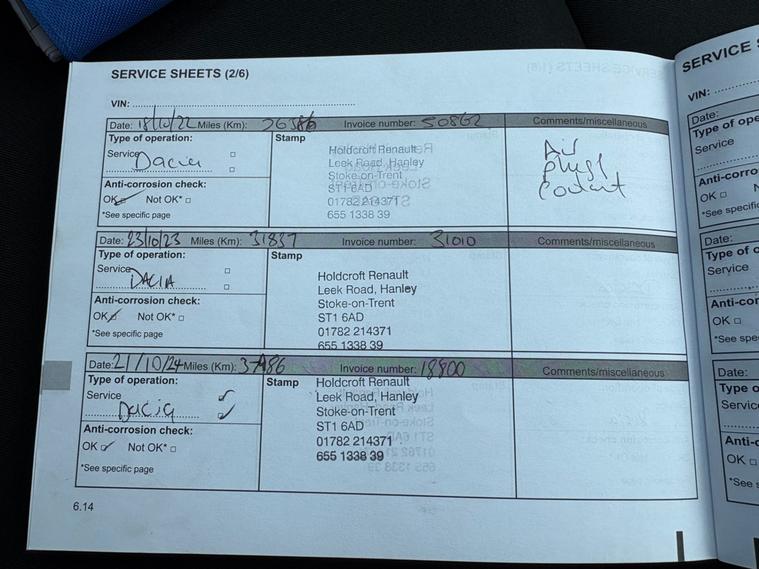 SERVICE SHEETS (2/6)
VIN:
Date: 18/10/22 Miles (Km): Invoice number: 50862 Comments/miscellaneous
Type of operation: Stamp
Service Dacia
Anti-corrosion check:
OK Not OK*
*See specific page
Holdcroft Renault
Leek Road, Hanley
Stoke-on-Trent
ST1 6AD
01782 214371
655 1338 39
Air
Plugs
Coolant
Date: 23/10/23 Miles (Km): 31837 Invoice number: 31010 Comments/miscellaneous
Type of operation: Stamp
Service DACIA
Anti-corrosion check:
OK Not OK*
*See specific page
Holdcroft Renault
Leek Road, Hanley
Stoke-on-Trent
ST1 6AD
01782 214371
655 1338 39
Date: 21/10/24 Miles (Km): Invoice number: 18900 Comments/miscellaneous
Type of operation: Stamp
Service Dacia
Anti-corrosion check:
OK Not OK*
*See specific page
Holdcroft Renault
Leek Road, Hanley
Stoke-on-Trent
ST1 6AD
01782 214371
655 1338 39
6.14
SERVICE
VIN:
Date:
Type of ope
Service
Anti-corro
OK N
*See specific
Date:
Type of o
Service
Anti-cor
OK
*See spe
Date:
Type o
Servic
Anti-c
OK
*See s